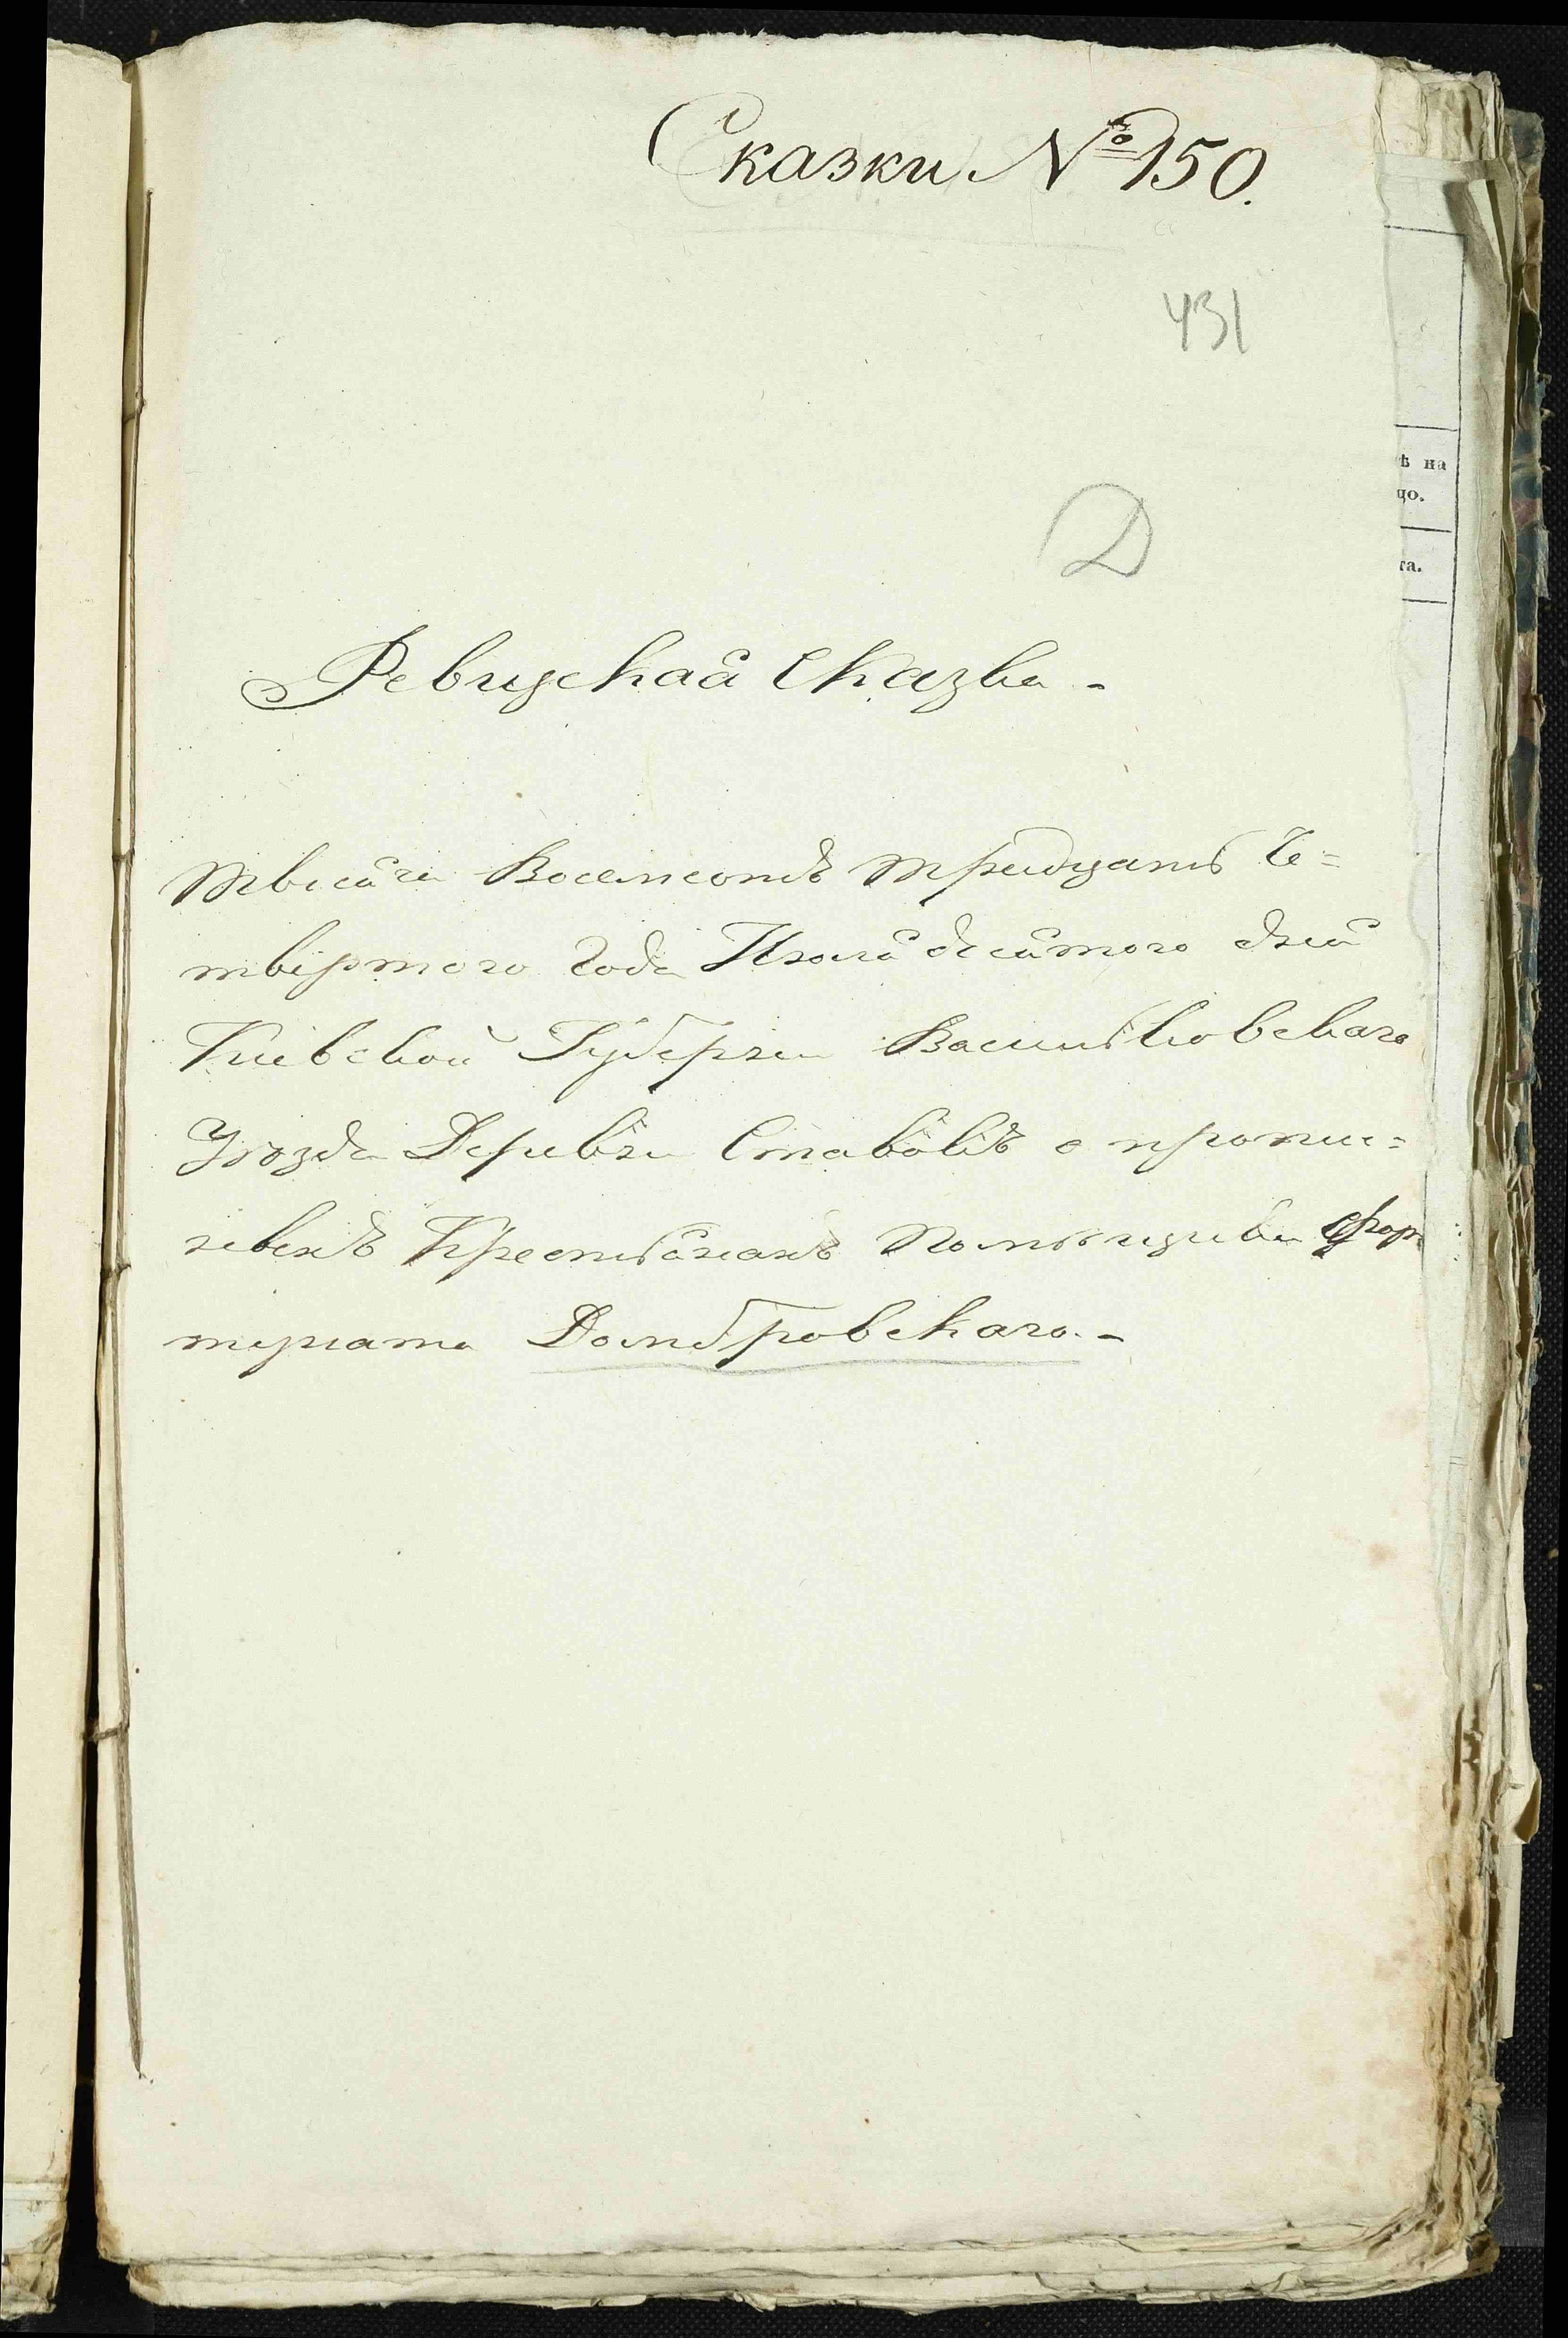 Сказки № 150.
431
Д
Ревизская Сказка -
Тысяча Восемсотъ тридцать Че=
твертого Года Июля десятого дня
Киевской Губернии Васильковскаго
Уезда Деревни Ставокъ о
Крестьянахъ Помещика Фор
туната Домбровскаго. -
ѣ на
цо.
та.